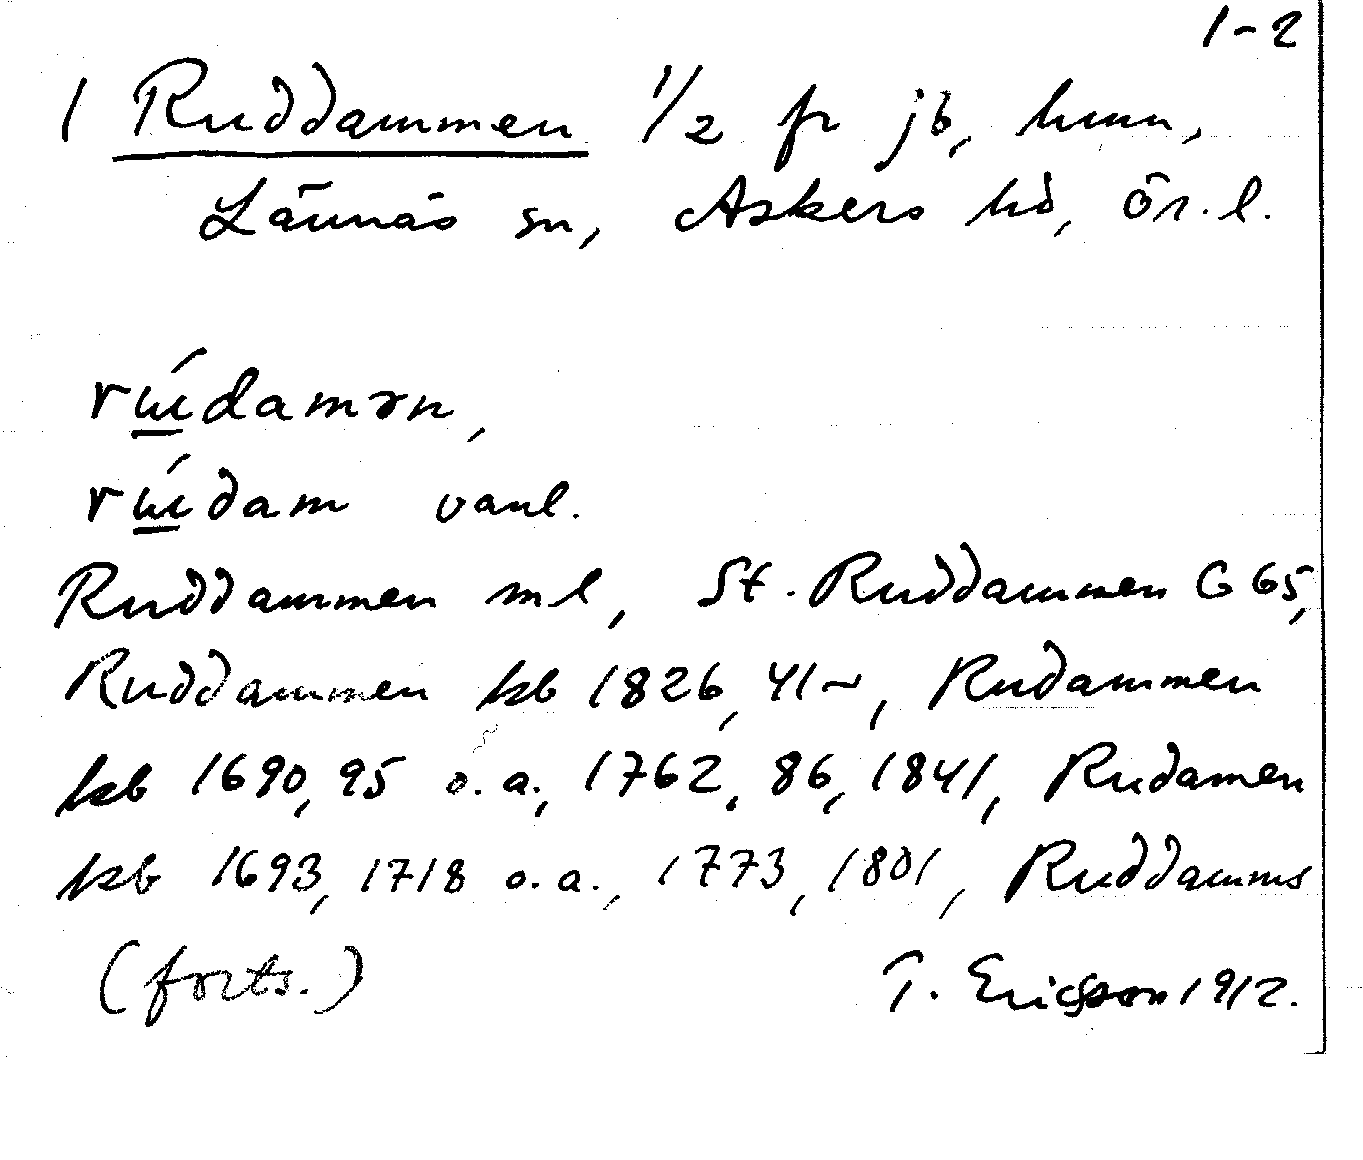 1-2
1 Ruddammen 1/2 fr jb, hmn,
Lännäs sn, Askers hd, Ör. l.
rɯ́damən,
rɯ́dam vanl.
Ruddammen ml, St. Ruddammen G 65,
Ruddammen kb 1826, 41~, Rudammen
kb 1690, 95 o. a., 1762, 86, 1841, Rudamen
kb 1693, 1718 o. a., 1773, 1801, Ruddamms
(forts.) T. Ericsson 1912.